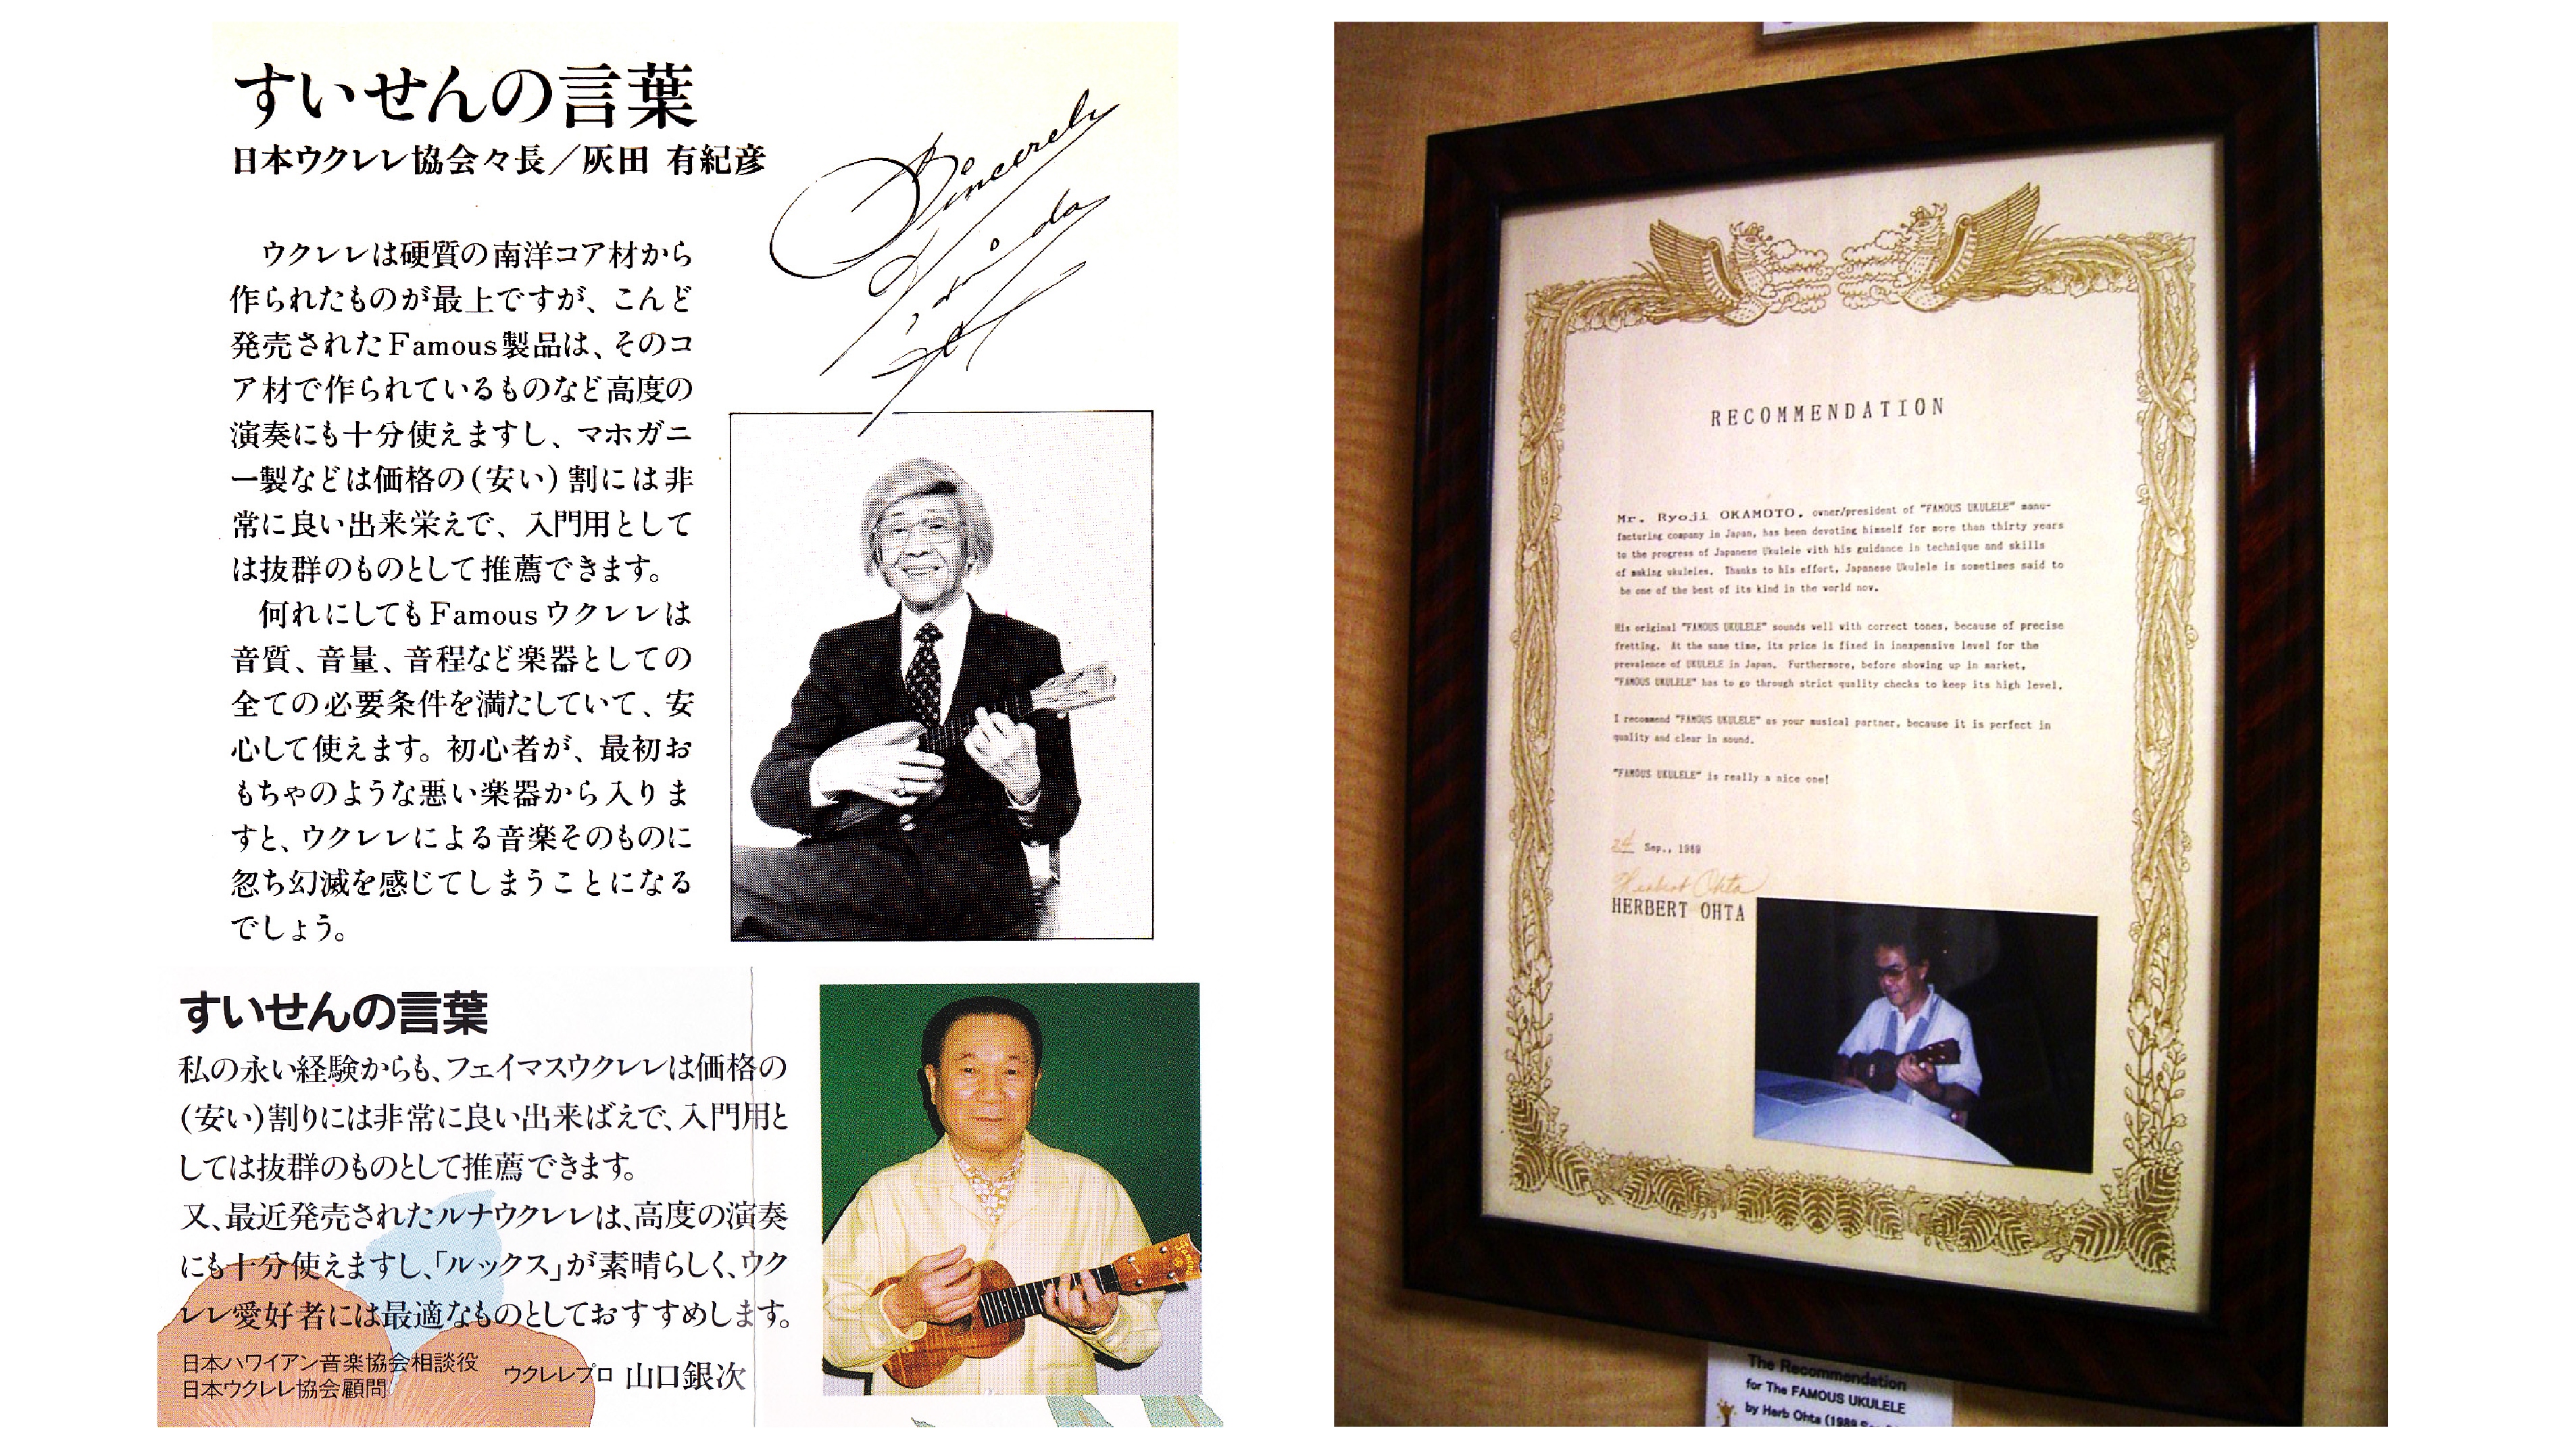 すいせんの言葉
日本ウクレレ協会々長／灰田 有紀彦
Sincerely
ウクレレは硬質の南洋コア材から
作られたものが最上ですが、こんど
発売されたFamous製品は、そのコ
ア材で作られているものなど高度の
演奏にも十分使えますし、マホガニ
ー製などは価格の(安い)割には非
常に良い出来栄えで、入門用として
は抜群のものとして推薦できます。
何れにしてもFamousウクレレは
音質、音量、音程など楽器としての
全ての必要条件を満たしていて、安
心して使えます。初心者が、最初お
もちゃのような悪い楽器から入りま
すと、ウクレレによる音楽そのものに
忽ち幻滅を感じてしまうことになる
でしょう。
すいせんの言葉
私の永い経験からも、フェイマスウクレレは価格の
(安い)割りには非常に良い出来ばえで、入門用と
しては抜群のものとして推薦できます。
又、最近発売されたルナウクレレは、高度の演奏
にも十分使えますし、「ルックス」が素晴らしく、ウク
レレ愛好者には最適なものとしておすすめします。
日本ハワイアン音楽協会相談役
日本ウクレレ協会顧問
ウクレレプロ 山口銀次
Famous
RECOMMENDATION
Mr. Ryoji OKAMOTO, owner/president of "FAMOUS UKULELE" manu-
facturing company in Japan, has been devoting himself for more than thirty years
to the progress of Japanese Ukulele with his guidance in technique and skills
of making ukuleles. Thanks to his effort, Japanese Ukulele is sometimes said to
be one of the best of its kind in the world now.
His original "FAMOUS UKULELE" sounds well with correct tones, because of precise
fretting. At the same time, its price is fixed in inexpensive level for the
prevalence of UKULELE in Japan. Furthermore, before showing up in market,
"FAMOUS UKULELE" has to go through strict quality checks to keep its high level.
I recommend "FAMOUS UKULELE" as your musical partner, because it is perfect in
quality and clear in sound.
"FAMOUS UKULELE" is really a nice one!
24 Sep., 1989
Herbert Ohta
HERBERT OHTA
The Recommendation
for The FAMOUS UKULELE
by Herb Ohta (1989